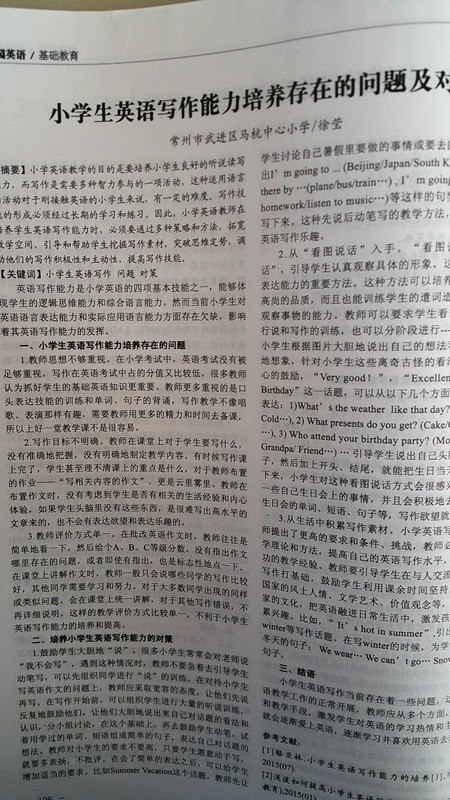 园英语 / 基础教育
小学生英语写作能力培养存在的问题及对
常州市武进区马杭中心小学/徐莹
摘要】小学英语教学的目的是要培养小学生良好的听说读写
力。而写作是需要多种智力参与的一项活动，这种运用语言
活动对于刚接触英语的小学生来说，有一定的难度，写作技
的形成必须经过长期的学习和练习。因此，小学英语教师在
养学生英语写作能力时，必须要通过多种策略和方法，拓宽
学空间，引导和帮助学生挖掘写作素材，突破思维定势，调
动他们的写作积极性和主动性，提高写作技能。
【关键词】小学生英语写作 问题 对策
英语写作能力是小学英语的四项基本技能之一，能够体
现学生的逻辑思维能力和综合语言能力。然而当前小学生对
英语语言表达能力和实际应用语言能力方面存在欠缺，影响
着其英语写作能力的发挥。
一、小学生英语写作能力培养存在的问题
1.教师思想不够重视。在小学考试中，英语考试没有被
足够重视，写作在英语考试中占的分值又比较低，很多教师
认为抓好学生的基础英语知识更重要。教师更多重视的是口
头表达技能的训练和单词、句子的背诵，写作教学不像唱
歌、表演那样有趣，需要教师用更多的精力和时间去备课，
所以上好一堂教学课不是很容易。
2.写作目标不明确。教师在课堂上对于学生要写什么，
没有准确地把握，没有明确地制定教学内容。有时候写作课
上完了，学生甚至理不清课上的重点是什么，对于教师布置
的作业——“写相关内容的作文”，更是云里雾里，教师在
布置作文时，没有考虑到学生是否有相关的生活经验和内心
体验，如果学生头脑里没有这些东西，是很难写出高水平的
文章来的，也不会有表达欲望和表达乐趣的。
3.教师评价方式单一。在批改英语作文时，教师往往是
简单地看一下，然后给个A、B、C等级分数，没有指出作文
哪里存在的问题，或者即使有指出，也是标志性地点一下。
在课堂上讲解作文时，教师一般只会说哪些同学的写作比较
好，其他同学需要学习和努力，对于大多数同学出现的同样
或类似问题，会在课堂上统一讲解，对于其他写作错误，不
再详细说明，这样的教学评价方式比较单一，不利于小学生
英语写作能力的培养和提高。
二、培养小学生英语写作能力的对策
1.鼓励学生大胆地“说”，很多小学生常常会对老师说
“我不会写”，遇到这种情况时，教师不要急着去引导学生
动笔写，可以先组织同学进行“说”的训练。在对待小学生
写英语作文的问题上，教师应采取宽容的态度，让他们先说
再写。在写作开始前，可以组织学生进行大量的听说训练，
反复地鼓励他们，让他们大胆地说出来自己对话题的看法和
认识，分小组讨论，在这个基础上，再去鼓励学生动笔，试
着用学过的单词、短语组成简单的句子，表达自己对话题的
想法。教师对小学生的要求不要高，只要学生愿意动手写，
就要多表扬，不批评，在会了简单的表达之后，可以给学生
增加适当的要求，比如Summer Vacation这个话题，教师先让
106
学生讨论自己暑假里要做的事情或要去的
出I’m going to … (Beijing/Japan/South K
there by …(plane/bus/train…) , I’m going
homework/listen to music…)等这样的句
写下来。这种先说后动笔写的教学方法，
英语写作乐趣。
2.从“看图说话”入手。“看图说
话”，引导学生认真观察具体的形象，这
表达能力的重要方法。这种方法可以培养
高尚的品质，而且也能训练学生的遣词造
观察事物的能力。教师可以要求学生看
行说和写的训练，也可以分阶段进行
小学生根据图片大胆地说出自己的想法
地想象，针对小学生这些离奇古怪的看
心的鼓励，“Very good！”，“Excellen
Birthday”这一话题，可以从以下几个方面
表达：1)What’s the weather like that day?
Cold…), 2) What presents do you get? (Cake/
…), 3) Who attend your birthday party? (Mo
Grandpa/ Friend…) … 引导学生说出自己头
子，然后加上开头、结尾，就能把生日当
下来，小学生对这种看图说话方式会很感
一些自己生日会上的事情，并且会积极地去
生日会的单词、短语、句子等，写作欲望就
3.从生活中积累写作素材。小学英语写
师提出了更高的要求和条件、挑战，教师必
学理论和方法，提高自己的英语写作水平，
功的教学经验。教师要引导学生在与人交流
写作打基础，鼓励学生利用课余时间坚持
国家的风土人情、文学艺术、价值观念等，
家的文化，把英语融进日常生活中，激发孩
累兴趣。比如，“It’s hot in summer”,引出
winter等写作话题。在写winter的时候，为学
冬天的句子：We wear… We can’t go… Snow
句子。
三、结语
小学生英语写作当前存在着一些问题，这
语教学工作的正常开展，教师应从多个方面，
和教学手段，激发学生对英语的学习热情和主
就会逐渐爱上英语，逐渐学习并喜欢用英语去
参考文献：
[1]骆亚林.小学生英语写作能力的培养[J].
2015(07).
[2]浅谈如何提高小学生英语
教育),2015(01)